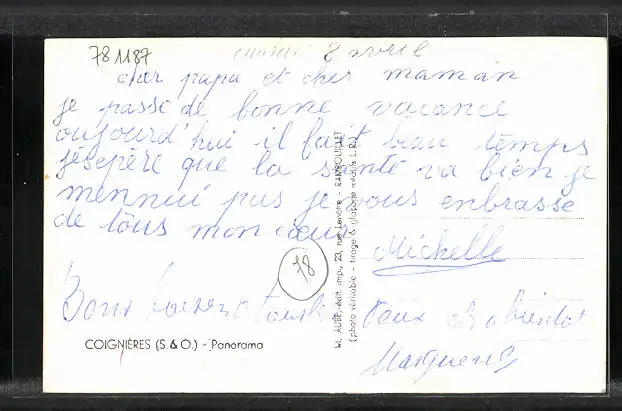 781187
8 avril
cher papa et cher maman
je passe de bonne vacance
oujourd'hui il fait beau temps
j'éspère que la santé va bien je
mennui pas je vous enbrasse
de tous mon cœur
Michelle
78
Bons a tous deux
COIGNIÈRES (S. & O.) - Panorama
édit. impr., 23, rue Lenotre - RAMBOUILLET
(photo véritable - tirage & glaçage inédits L. R.)